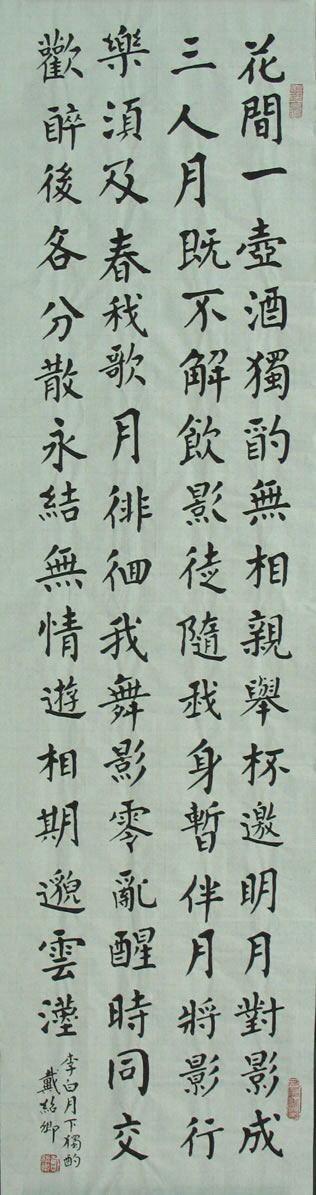 花間一壺酒獨酌無相親舉杯邀明月對影成
三人月既不解飲影徒隨我身暫伴月將影行
樂須及春我歌月徘徊我舞影零亂醒時同交
歡醉後各分散永結無情遊相期邈雲漢
李白月下獨酌
戴紹卿